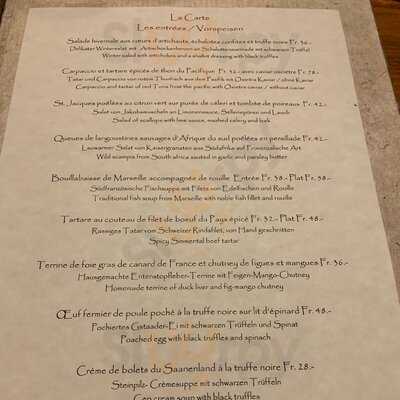 La Carte
Les entrées / Vorspeisen
Salade hivernale aux cœurs d'artichauts, échalotes confites et truffe noire Fr. 36.-
Delikater Wintersalat mit Artischockenherzen an Schalottenvinaigrette mit schwarzen Trüffel
Winter salad with artichokes and a shallot dressing with black truffles
Carpaccio et tartare épices de thon du Pacifique Fr. 42.- avec caviar oscietre Fr. 78.-
Tatar und Carpaccio von rotem Thunfisch aus dem Pacific mit Oscietra Kaviar / ohne Kaviar
Carpaccio and tartar of red Tuna from the pacific with Oscietra caviar / without caviar
St. Jacques poêlées au citron vert sur purée de céleri et tombée de poireaux Fr. 42.-
Salat von Jakobsmuscheln an Limonensauce, Selleriepüree und Lauch
Salad of scallops with lime sauce, mashed celery and leek
Queues de langoustines sauvages d'Afrique du sud poêlées en persillade Fr. 42.-
Lauwarmer Salat von Kaisergranaten aus Südafrika auf Provenzalische Art
Wild scampis from South africa sauted in garlic and parsley butter
Bouillabaisse de Marseille accompagnée de rouille Entrée Fr. 38.- Plat Fr. 58.-
Südfranzösische Fischsuppe mit Filets von Edelfischen und Rouille
Traditional fish soup from Marseille with noble fish fillet and rouille
Tartare au couteau de filet de boeuf du Pays épicé Fr. 32.- Plat Fr. 48.-
Rassiges Tatar vom Schweizer Rindsfilet, von Hand geschnitten
Spicy Simmental beef tartar
Terrine de foie gras de canard de France et chutney de figues et mangues Fr. 36.-
Hausgemachte Entenstopfleber-Terrine mit Feigen-Mango-Chutney
Homemade terrine of duck liver and fig-mango chutney
Œuf fermier de poule poché à la truffe noire sur lit d'épinard Fr. 48.-
Pochiertes Gstaader-Ei mit schwarzen Trüffeln und Spinat
Poached egg with black truffles and spinach
Crème de bolets du Saanenland à la truffe noire Fr. 28.-
Steinpilz- Crèmesuppe mit schwarzen Trüffeln
Cep cream soup with black truffles